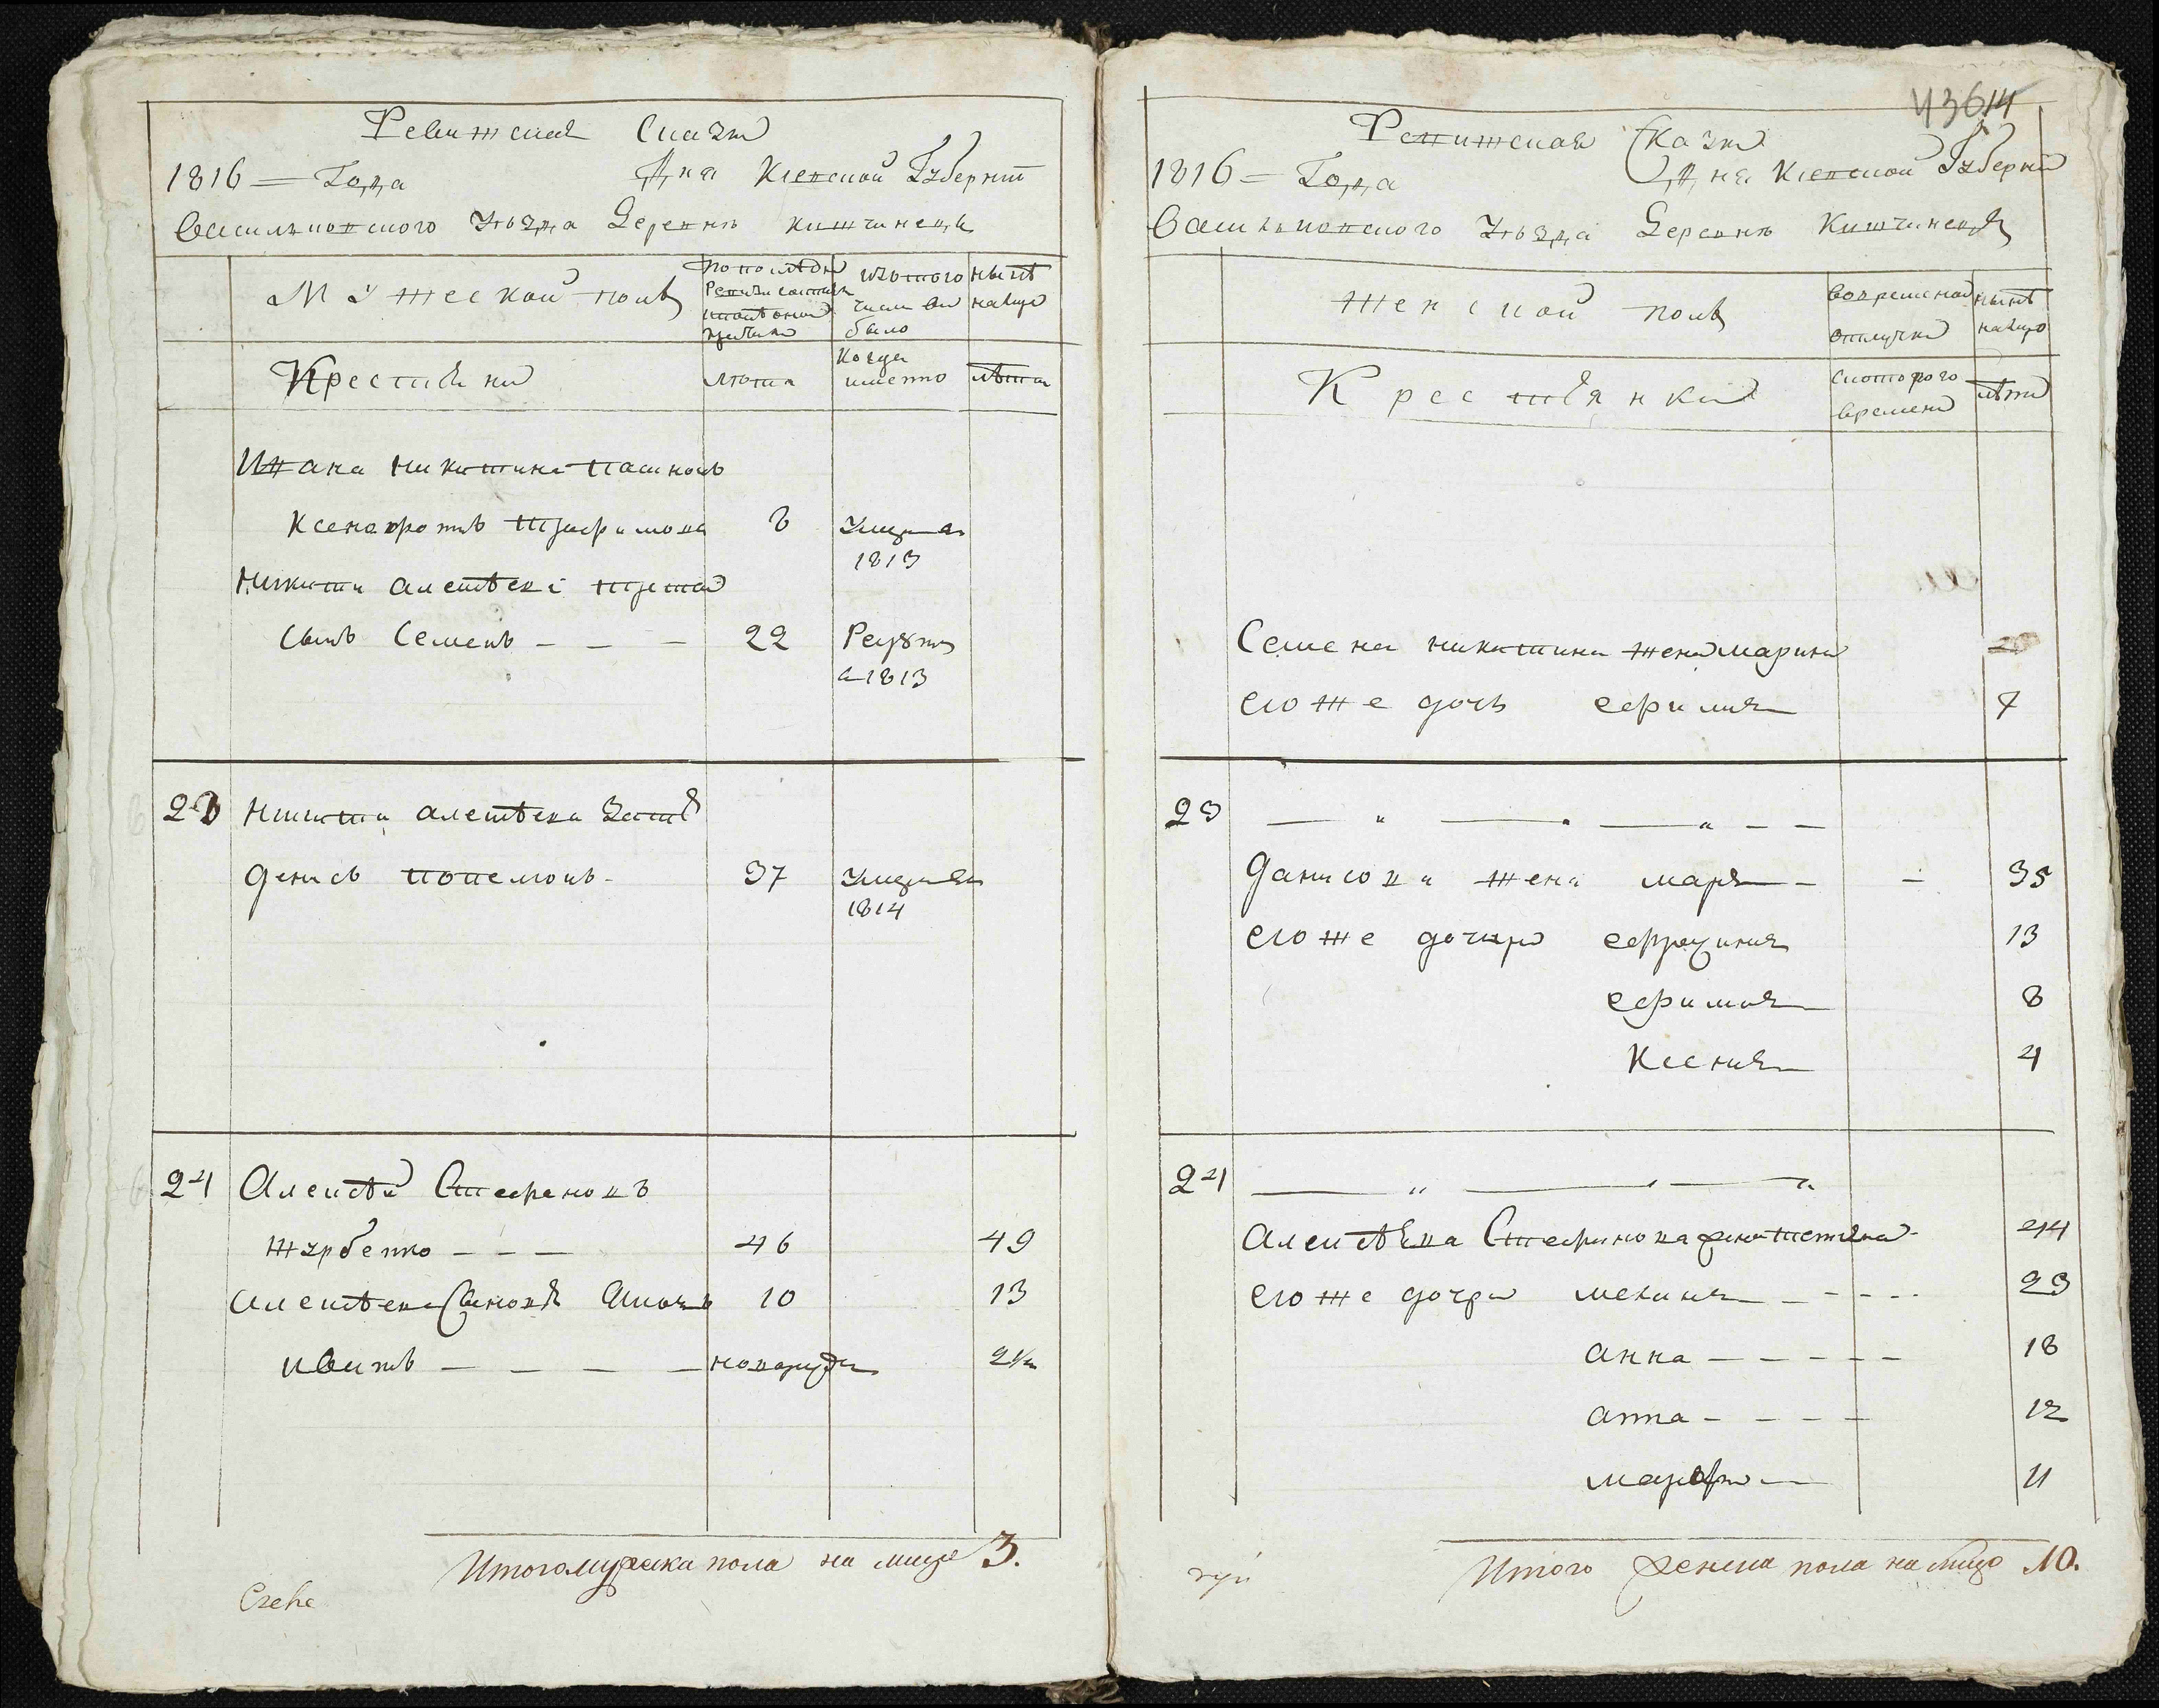 Ревижская Сказка
1816 = Года Дня Киевской Губернии
Васильковского Уезда Деревни кишчинецъ
Мужеской полъ
по последней Ревизии состояло
изтого числа выбыло
ныне налицо
Крестьяни
лета
когда именно
лета
Ивана Никитина пасинокъ
Ксенофонтъ
8
Умре
1813
Никиты алексеева третий
сынъ Семенъ - - -
22
Рекрутъ
в 1813
23 Никиты алексеева зять
денисъ
37
Умре
1814
24 Алексей Стефановъ
журбенко - - -
46
49
Алексеева Сыновья
10
13
ивитъ - - - -
новорожде
2½
Итого мужеска пола на лицо 3.
Czehe
43614
Ревижская Сказка
1816 = Года Дня Киевской Губернии
Васильковского Уезда Деревни Кишчинецъ
Женской полъ
вовременной отлучке
ныне налицо
Крестьянки
скоторого времени
лета
Семена никитина жена марина
его же дочь ефимия
7
23
Данисова жена марья - -
35
его же дочери ефросиния
13
ефимия
8
Ксения
4
24
Алексеева Стефанова жена
44
его же дочери мелания - - - -
23
анна - - - - -
18
анна - - - -
12
марфа
11
Итого женска пола на лицо 10.